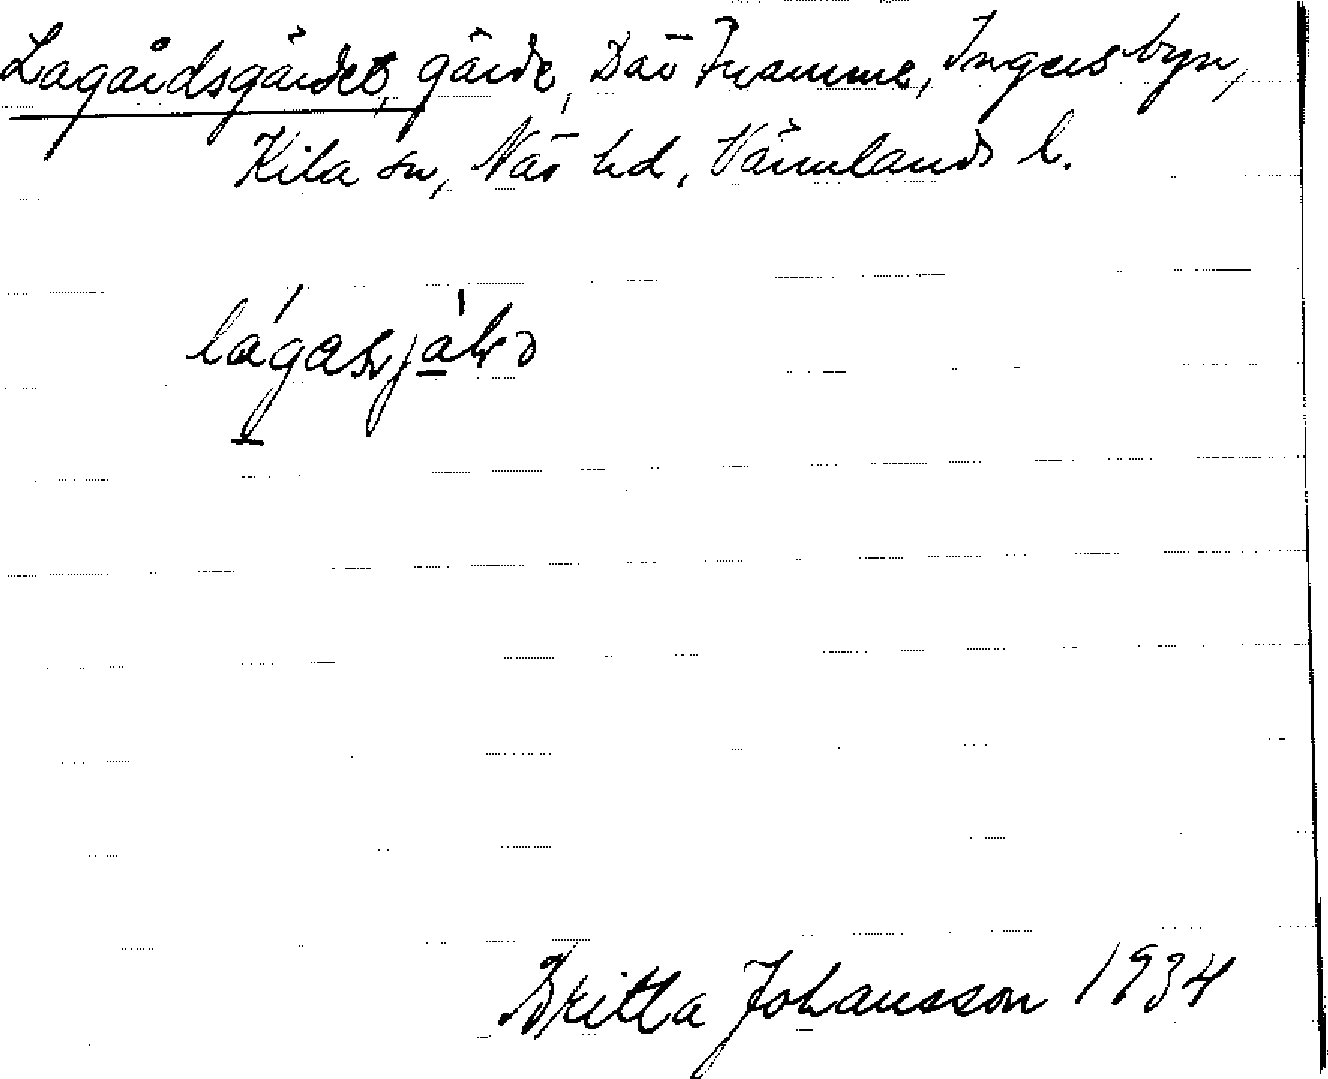 Lagårdsgärdet, gärde, Där Framme, Ingersbyn,
Kila sn, Näs hd, Värmlands l.
Britta Johansson 1934